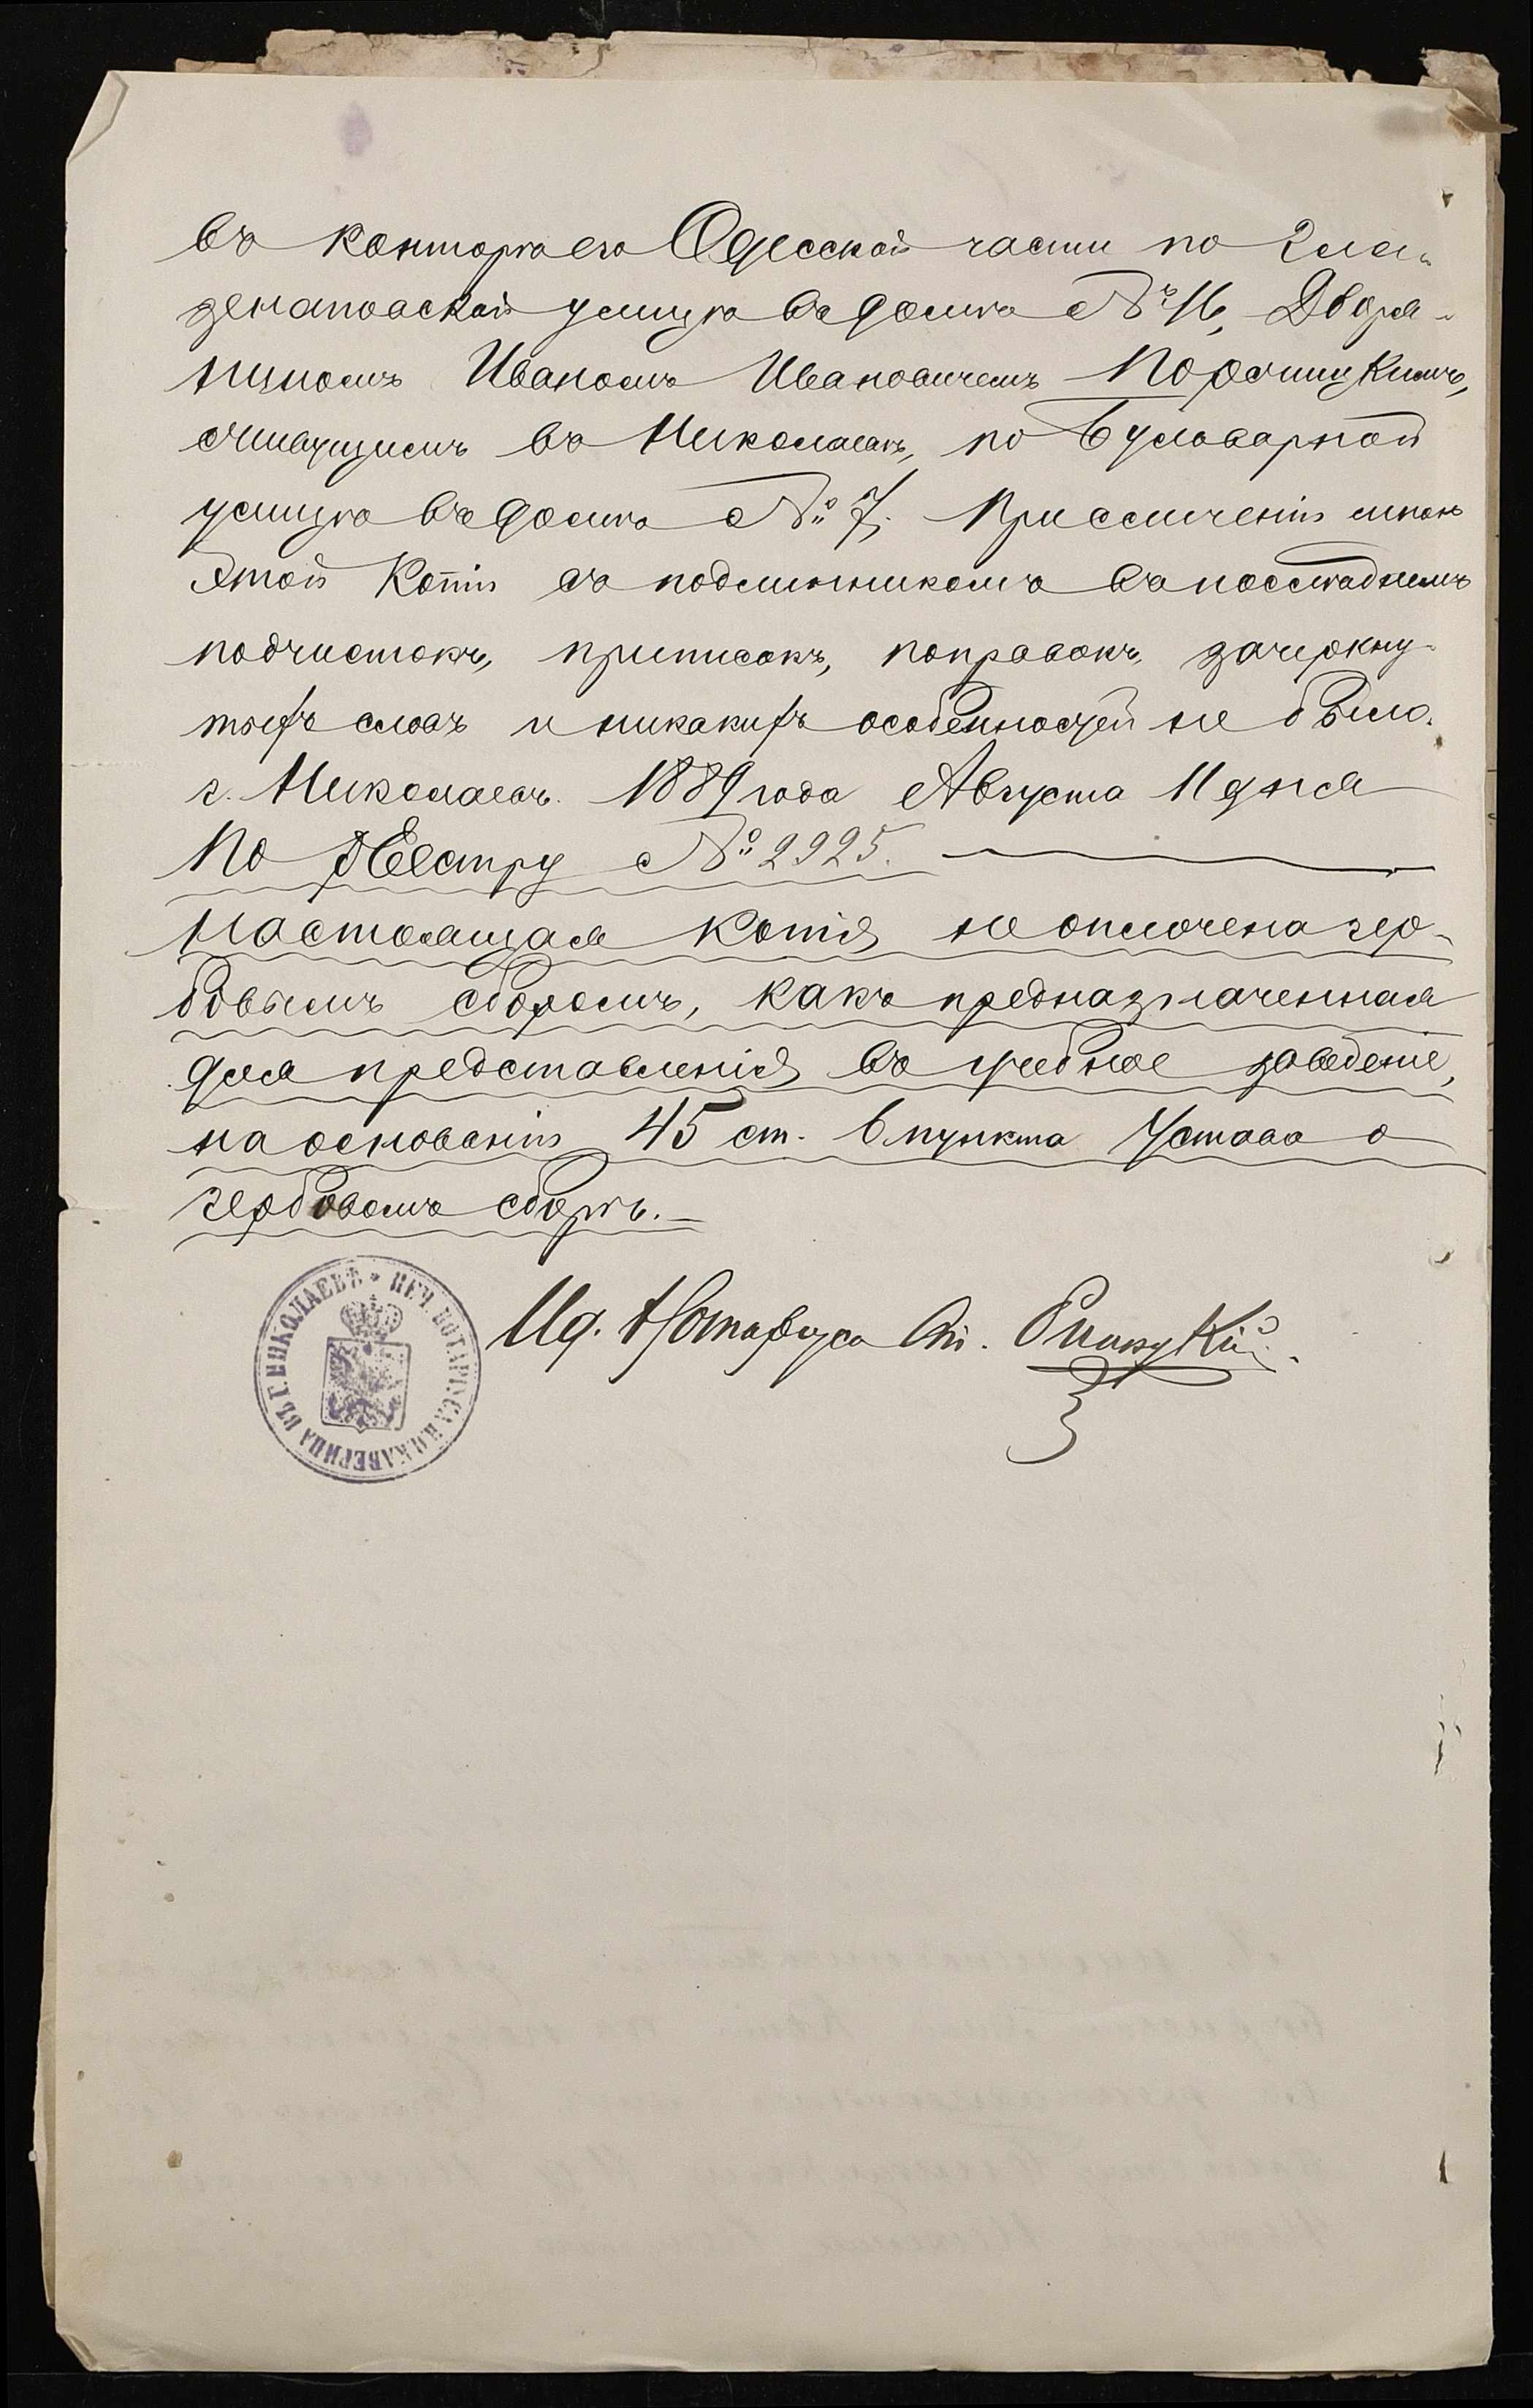 въ конторѣ его Одесской части по Глаз-
зенаповской улицѣ въ домѣ № 16, Дворя-
ниномъ Иваномъ Ивановичемъ
живущимъ въ Николаевѣ, по Бульварной
улицѣ въ домѣ № 7. При сличеніи мною
этой копіи съ подлинникомъ въ послѣднемъ
подчистокъ, приписокъ, поправокъ, зачеркну-
тыхъ словъ и никакихъ особенностей не было.
г. Николаевъ. 1889 года Августа 11 дня
По реестру № 2925.
Настоящая копія не оплочена гер-
бовымъ сборомъ, какъ предназначенная
для представленія въ учебное заведеніе,
на основаніи 45 ст. 6 пункта Устава о
гербовомъ сборѣ.
Ид. Нотаріуса
ПЕЧ. НОТАРІУСА ВЪ Г. НИКОЛАЕВѢ